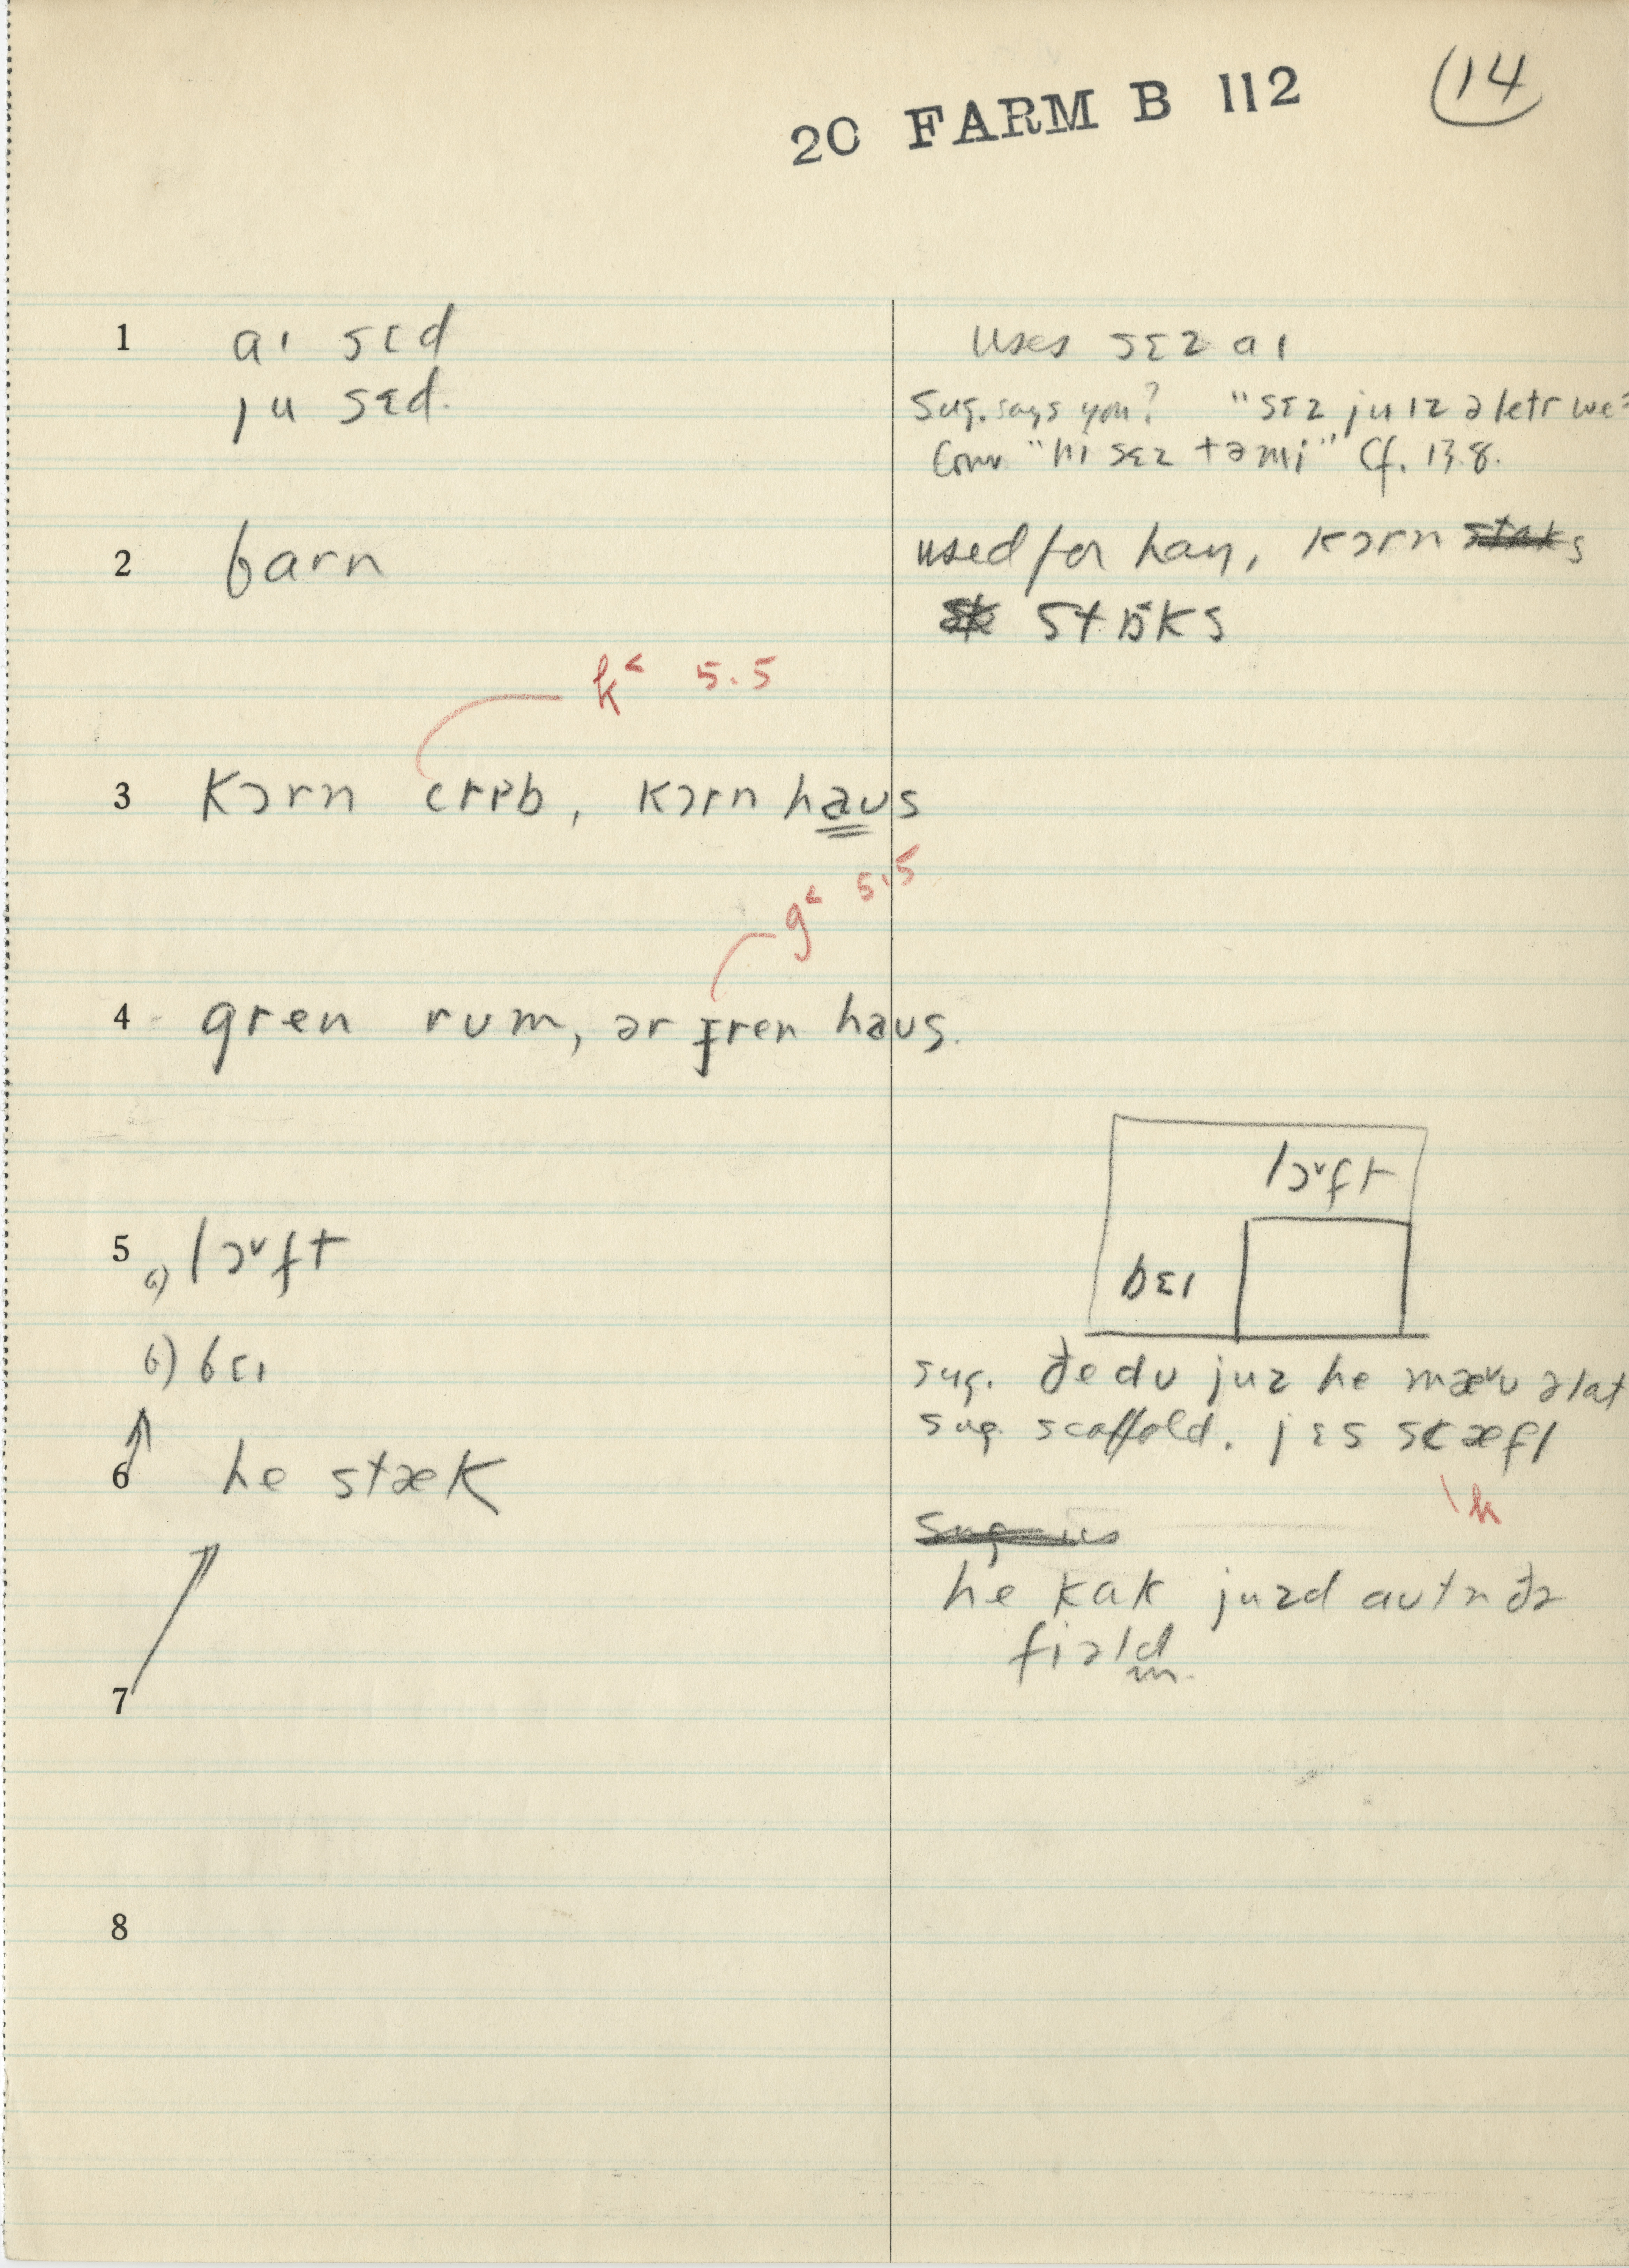 20 FARM B 112
14
1 aɪ sɛd
uses sɛz aɪ
ju sɛd.
Sug. says you? "sɛz ju ɪz ə letr we
Conv "hi sɛz tə mi" Cf. 13.8.
2 barn
used for hay, kɔrn
staks
k˂ 5.5
3 kɔrn crɪb, kɔrn haus
g˂ 5.5
4 gren rum, ər ɟren haus.
lɔ˅ft
5 a) lɔ˅ft
bɛɪ
b) bɛɪ
sug. đe du juz he mæ˅u əlat
sug. scaffold. jɛs scæfl
k
6 he stæk
he kak juzd autn đə
fiəld
7
8